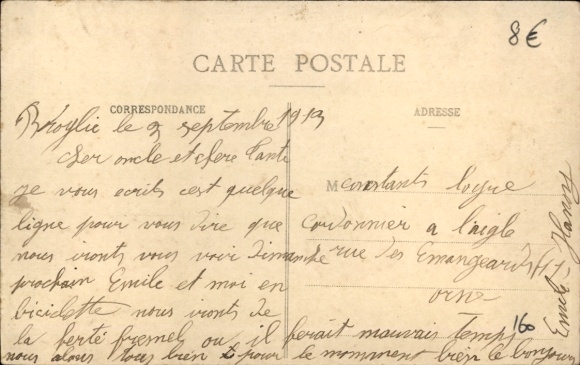 8€
CARTE POSTALE
CORRESPONDANCE
ADRESSE
Broglie le 3 septembre 1913
cher oncle et chere tante
je vous ecrits cest quelque
ligne pour vous dire que
nous vironts vous voir dimanche
prochain Emile et moi en
biciclette nous vironts de
la ferté fresnel ou il ferait mauvais temps
nous alons tous bien pour le momment bien le bonjour
M constants
cordonnier a laigle
rue des Emangeards
orne
168
Emile